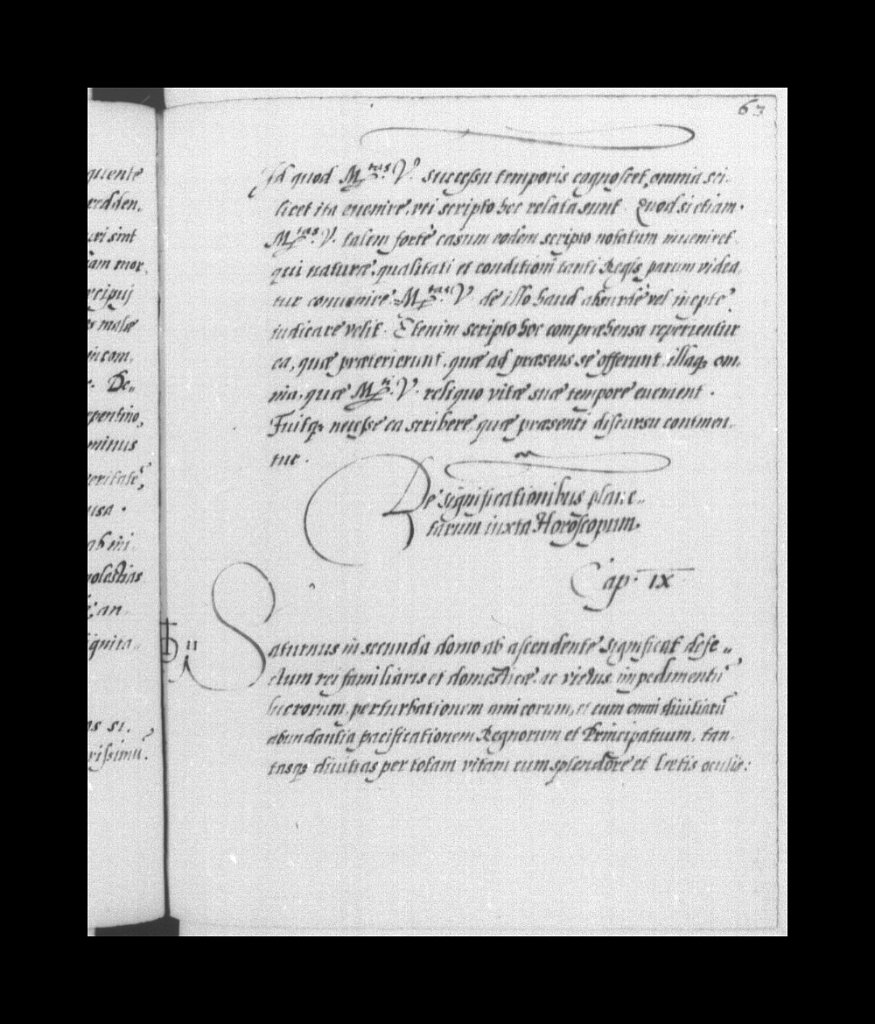 63
Id quod M.tas V. successu temporis cognoscet, omnia sci-
licet ita euenire, vti scripto hoc relata sunt. Quod si etiam
M.tas V. talem fortè casum eodem scripto notatum inueniret
qui naturæ, qualitati et conditioni tanti Regis parum videa-
tur conuenire M.tas V. de illo haud absurdè vel ineptè
iudicare velit. Etenim scripto hoc compræhensa reperientur
ea, quæ præterierunt, quæ ad præsens se offerunt, illaq; om-
nia, quæ M. V. reliquo vitæ suæ tempore euenient.
Fuitq; necesse ea scribere quæ præsenti discursu continen-
tur.
De significationibus plane-
tarum iuxta Horoscopum.
Cap. IX
♄ II
Saturnus in secunda domo ab ascendente significat defe-
ctum rei familiaris et domesticæ ac victus, impedimentũ
lucrorum, perturbationem amicorum, et cum omni diuitiarũ
abundantia pacificationem Regnorum et Principatuum, tan-
tasq; diuitias per totam vitam cum splendore et lætis oculis:
quente
redden-
sint
mor-
malæ
De-
repentino,
minus
veritate,
ab
molestias
an-
si-